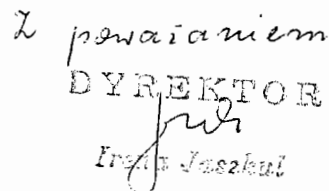 Z poważaniem
DYREKTOR
Irena Jaszkul